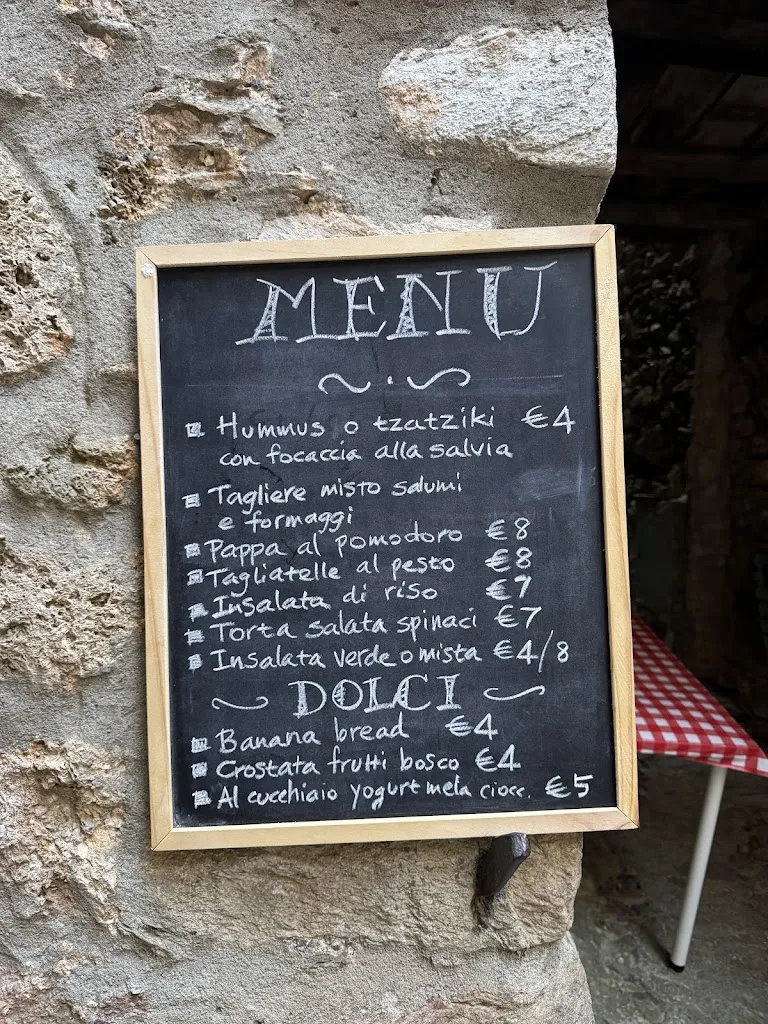 MENU
Hummus o tzatziki €4
con focaccia alla salvia
Tagliere misto salumi
e formaggi
Pappa al pomodoro €8
Tagliatelle al pesto €8
Insalata di riso €7
Torta salata spinaci €7
Insalata verde o mista €4/8
DOLCI
Banana bread €4
Crostata frutti bosco €4
Al cucchiaio yogurt mela ciocc. €5